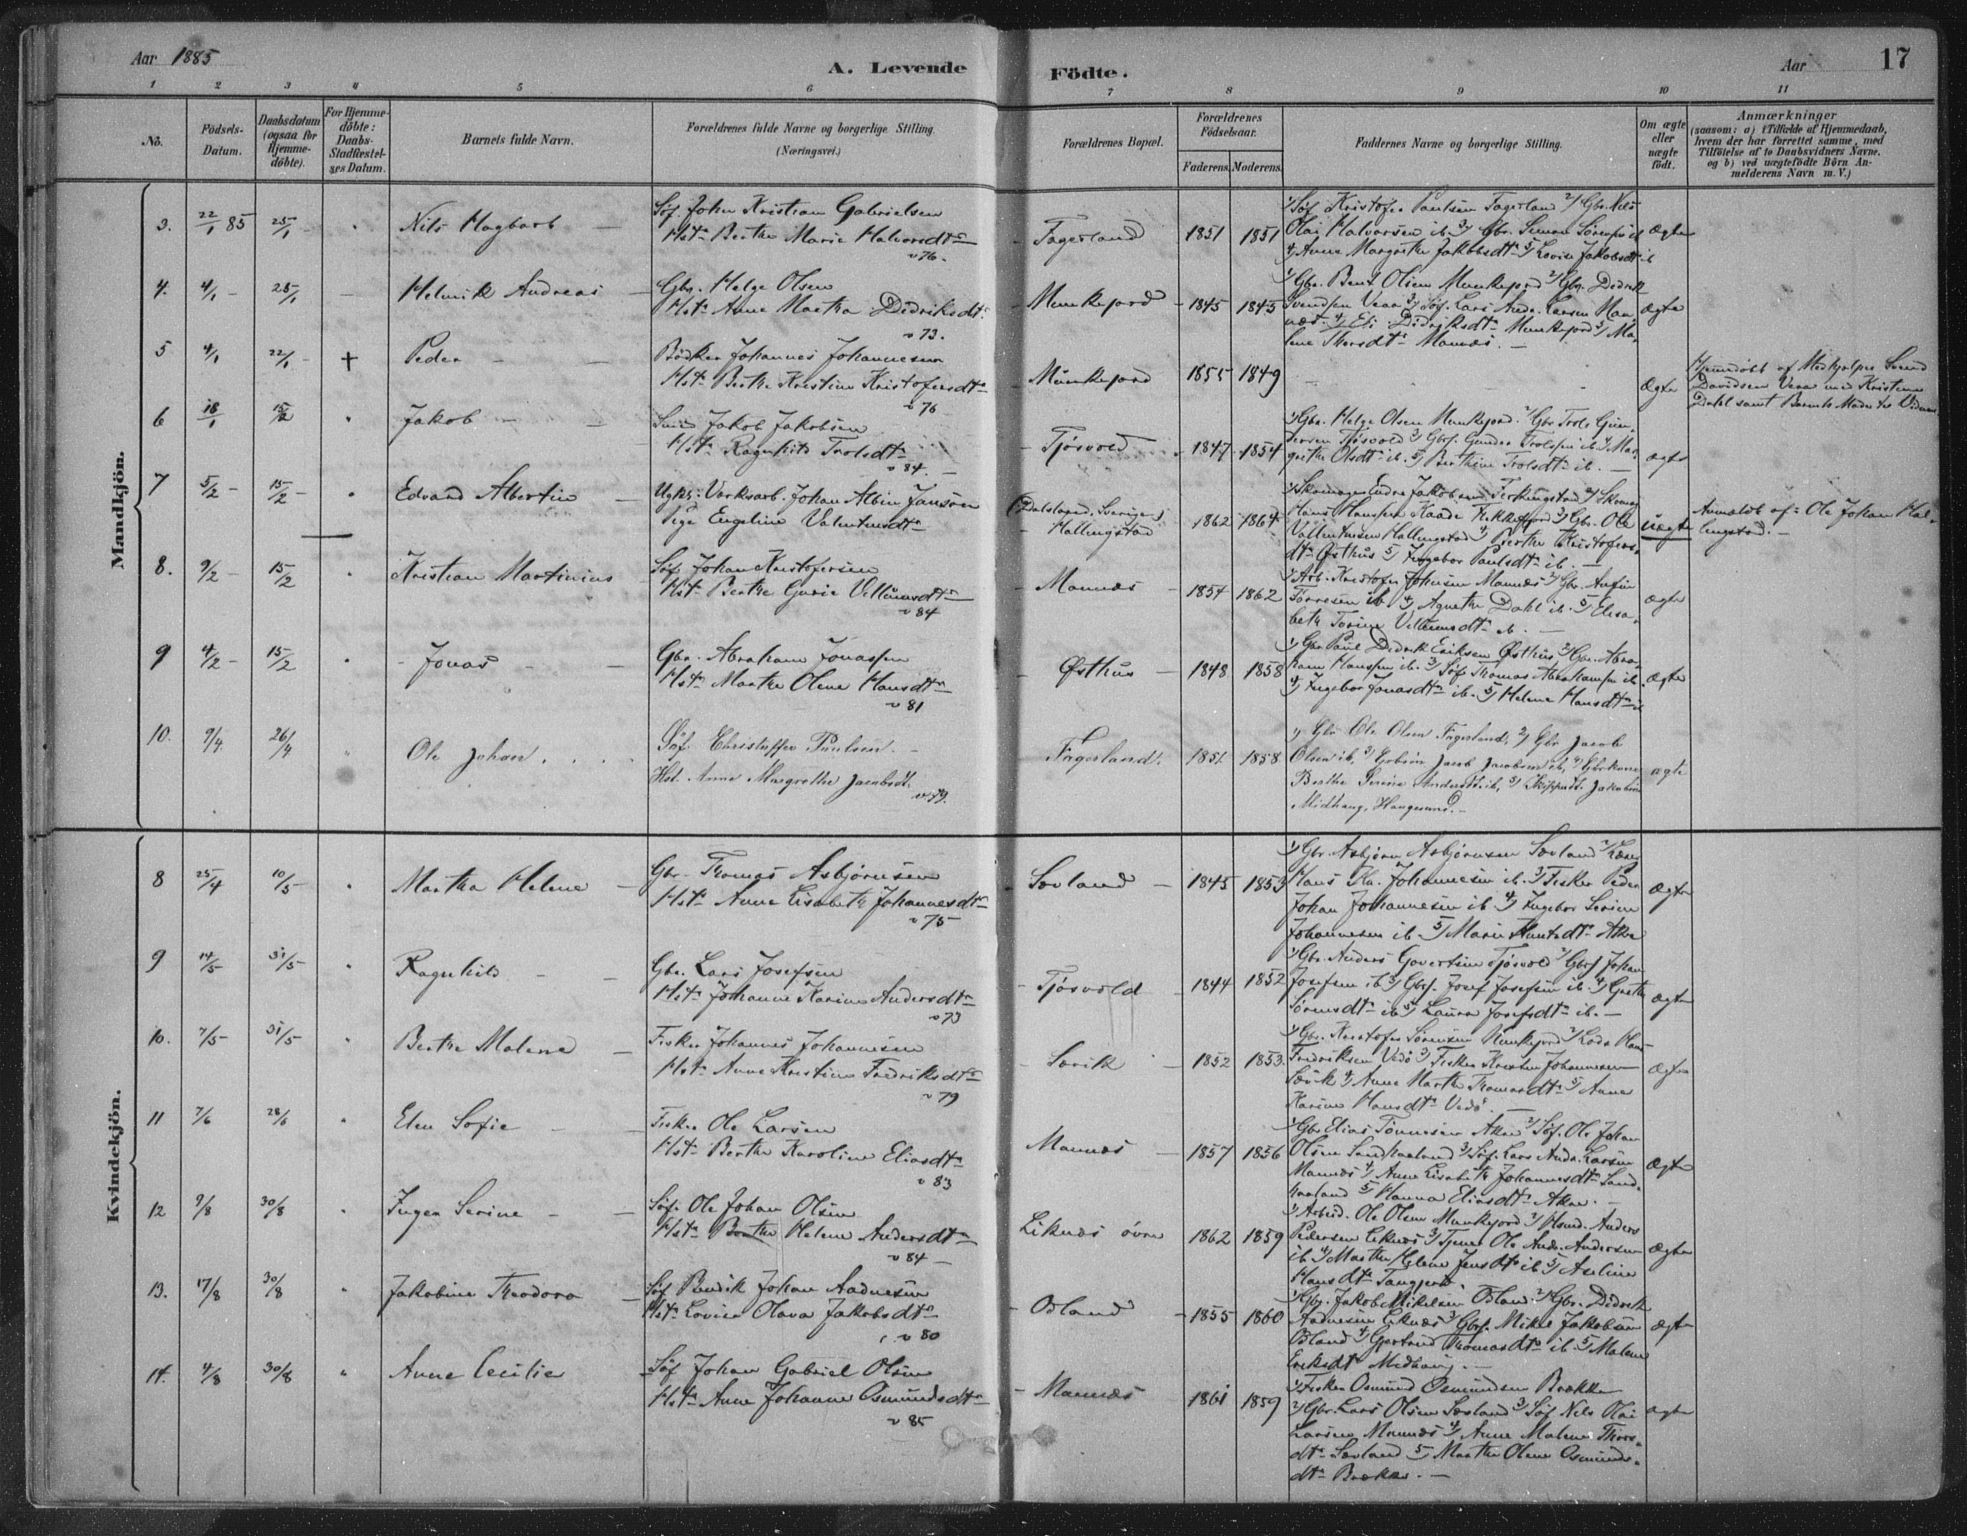 Aar 1885
A. Levende Födte.
Aar
17
1 2 3 4 5 6 7 8 9 10 11
No.
Födsels-Datum.
Daabsdatum (ogsaa for Hjemme-döbte).
For Hjemme-döbte: Daabs-Stadfæstel-ses Datum.
Barnets fulde Navn.
Forældrenes fulde Navne og borgerlige Stilling.
(Næringsvei.)
Forældrenes Bopæl.
Forældrenes Födselsaar.
Faderens. Moderens.
Faddernes Navne og borgerlige Stilling.
Om ægte eller uægte födt.
Anmærkninger
(saasom: a) i Tilfælde af Hjemmedaab, hvem der har forrettet samme, med Tilföielse af to Daabsvidners Navne, og b) ved uægtefödte Börn Anmelderens Navn m. V.)
Mandkjön.
3. 22/1 85 25/1 Nils Hagbart
Søf. John Kristian Gabrielsen
Hst. Berthe Marie Halvorsdtr
v 76.
Fagerland 1851 1851
1/ Søf. Kristofer Paulsen Fagerland 2/ Gbr. Nils
Olai Halvorsen ib. 3/ Gbr. Simon
4/ Anne Margrethe Jakobsdtr 5/ Lovise Jakobsdtr ib
Ægte
4. 4/1 25/1 Helmik Andreas
Gbr. Helge Olsen
Hst. Anne Martha Didriksdtr
v 73.
Munkejord 1845 1845
1/ Gbr. Bent Olsen Munkejord 2/ Gbr. Didrik
Svendsen Veaa 3/ Søf. Lars Andr. Larsen Man-
næs 4/ Eli Didriksdtr Munkejord 5/ Ma-
lene Thorsdtr Mannæs.
Ægte
5 4/1 22/1 + Peder
Bødker Johannes Johannesen
Hst. Berthe Kristine Kristofersdtr
v 76
Munkejord 1855 1849
Ægte
Hjemdøbt af Medhjelper Svend
Davidsen Veaa med Kristine
Dahl samt Barnets Moder til Vidner
6 18/1 15/2 Jakob
Smed Jakob Jakobsen
Hst. Ragnhild Trolsdtr
v 84.
Tjøsvold 1847 1854
1/ Gbr. Helge Olsen Munkejord. 2/ Gbr Trols Gun-
dersen Tjøsvold 3/ Gbrs. Gunder Trolssen ib. 4/ Mar-
grethe Olsdtr ib. 5/ Berthine Trolsdtr ib.
ægte
7 5/2 15/2 Edvard Albertin
Ugkl. Verksarb. Johan Albin Jansøn
Pige Engeline Valentinsdtr
(Dalsland, Sverige)
Hallingstad
1862 1864
1/ Skomager Endre Jakobsen Ferkingstad 2/ Skomag.
Hans Hanssen Kaade 3/ Gbr. Ole
Vallentinsen Hallingstad 4/ Berthe Kristofers-
dtr Østhus 5/ Ingebor Paulsdtr ib.
Uægte
Anmeldt af Ole Johan Hal-
lingstad.
8. 9/2 15/2 Kristian Martinius
Søf. Johan Kristofersen
Hst. Berthe Gurie Villumsdtr
v 84
Mannæs 1854 1862
1/ Arb. Kristofer Johnsen Mannæs 2/ Gbr. Anfin
Tørresen ib 4/ Agnethe Dahl ib. 5/ Elisa-
beth Torine Villumsdtr ib.
Ægte
9 4/2 15/2 Jonas
Gbr. Abraham Jonassen
Hst. Marthe Olene Hansdtr
v 81
Østhus 1848 1858
1/ Gbr Paul Didrik Eriksen Østhus 2/ Gbr. Abra-
ham Hanssen ib. 3/ Søf. Thomas Abrahamsen ib.
4/ Ingebor Jonasdtr ib. 5/ Helene Hansdtr ib
Ægte
10. 9/4. 26/4 Ole Johan
Søf. Christoffer Paulsen.
Hst. Anne Margrethe Jacobsdt.
v. 79.
Fagerland. 1851 1858
1/ Gbr Ole Olsen Fagerland, 2/ Gbr Jacob
Olsen ib, 3/ Jacob Jacobsen ib, 4/ Gbrkone
Berthe Serine Andersdt. ib, 5/ Jakobine
Midhaug, Haugesund.
ægte
Kvindekjön.
8 25/4 10/5 Martha Helene
Gbr. Thomas Asbjørnsen
Hst. Anne Lisabeth Johannesdtr
v 75
Søvland 1845 1853
1/ Gbr. Asbjørn Asbjørnsen Søvland 2/ Læser
Hans Kr. Johannesen ib. 3/ Fisker Peder
Johan Johannesen ib 4/ Ingebor Serine
Johannesen ib. 5/ Marie Knutsdtr Aker
Ægte
9 14/5 31/5 Ragnhild
Gbr. Lars Josefsen
Hst. Johanne Karine Andersdtr
v 73
Tjøsvold 1844 1852
1/ Gbr. Anders Govertsen Tjøsvold 2/ Gbrs. Johan
Josefsen ib 3/ Gbrs. Josef Josefsen ib. 4/ Grethe
Sørensdtr ib. 5/ Laura Josefsdtr ib.
Ægte
10. 7/5 31/5 Berthe Malene
Fisker Johannes Johannesen
Hst. Anne Kristine Fredriksdtr
v 79
Sævik 1852 1853.
1/ Gbr. Kristofer Sørensen Munkejord 2/ Lods Hans
Fredriksen Vedø 3/ Fisker Kristen Johannesen
Sævik 4/ Anne Marthe Thomasdtr 5/ Anne
Karine Hansdtr Vedø.
Ægte
11 7/6 28/6 Elen Sofie
Fisker Ole Larsen
Hst. Berthe Karoline Eliasdtr
v 83
Mannæs 1857 1856
1/ Gbr. Elias Tønnesen Aker 2/ Søf. Ole Johan
Olsen Sandhaaland 3/ Søf. Lars Andr. Larsen
Mannæs 4/ Anne Lisabeth Johannesdtr Sand-
haaland 5/ Hanna Eliasdtr Aker.
Ægte
12 9/8 30/8 Inger Serine
Søf. Ole Johan Olsen
Hst. Berthe Helene Andersdtr
v 84
Liknæs øvre 1862 1859
1/ Arbeid. Ole Olsen Munkejord 2/ Husmd. Anders
Pedersen Liknæs 3/ Tjener Ole Andr. Andersen
ib 4/ Marthe Helene Jensdtr ib 5/ Aseline
Hansdtr Tangjerd.
Ægte
13. 17/8 30/8 Jakobine Theodora
Søf Bendik Johan Aadnesen
Hst. Lovise Olava Jakobsdtr
v 80
Ødland 1855 1860
1/ Gbr. Jakob Mikelsen Ødland. 2/ Gbr. Didrik
Aadnesen Liknæs 3/ Gbrs. Mikel Jakobsen
Ødland 4/ Gjertrud Thomasdtr ib 5/ Malene
Eriksdtr Midhaug.
Ægte
14. 4/8 30/8 Anne Cecilie
Søf Johan Gabriel Olsen
Hst. Anne Johanne Osmundsdtr
v 85
Mannæs 1861 1859
1/ Fisker Osmund Osmundsen Brække
2/ Gbr. Lars Olsen Søvland 3/ Søf. Nils Olai
Larsen Mannæs 4/ Anne Malene Thors-
dtr Søvland 5/ Marthe Olene Osmunds-
dtr Brække.
ægte